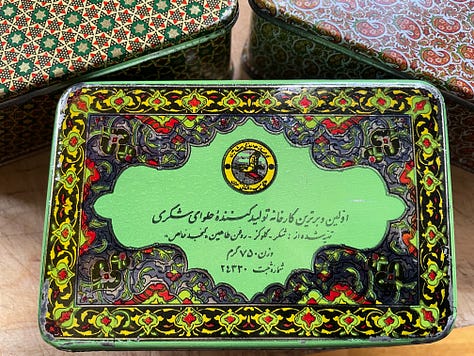 اولین و برترین کارخانه تولید کنندهٔ حلوای شکری
تهیه شده از : شکر - گلوکز - روغن طاهین «کنجد خالص»
وزن ۷۵۰ گرم
شماره ثبت ۲۴۳۳۰